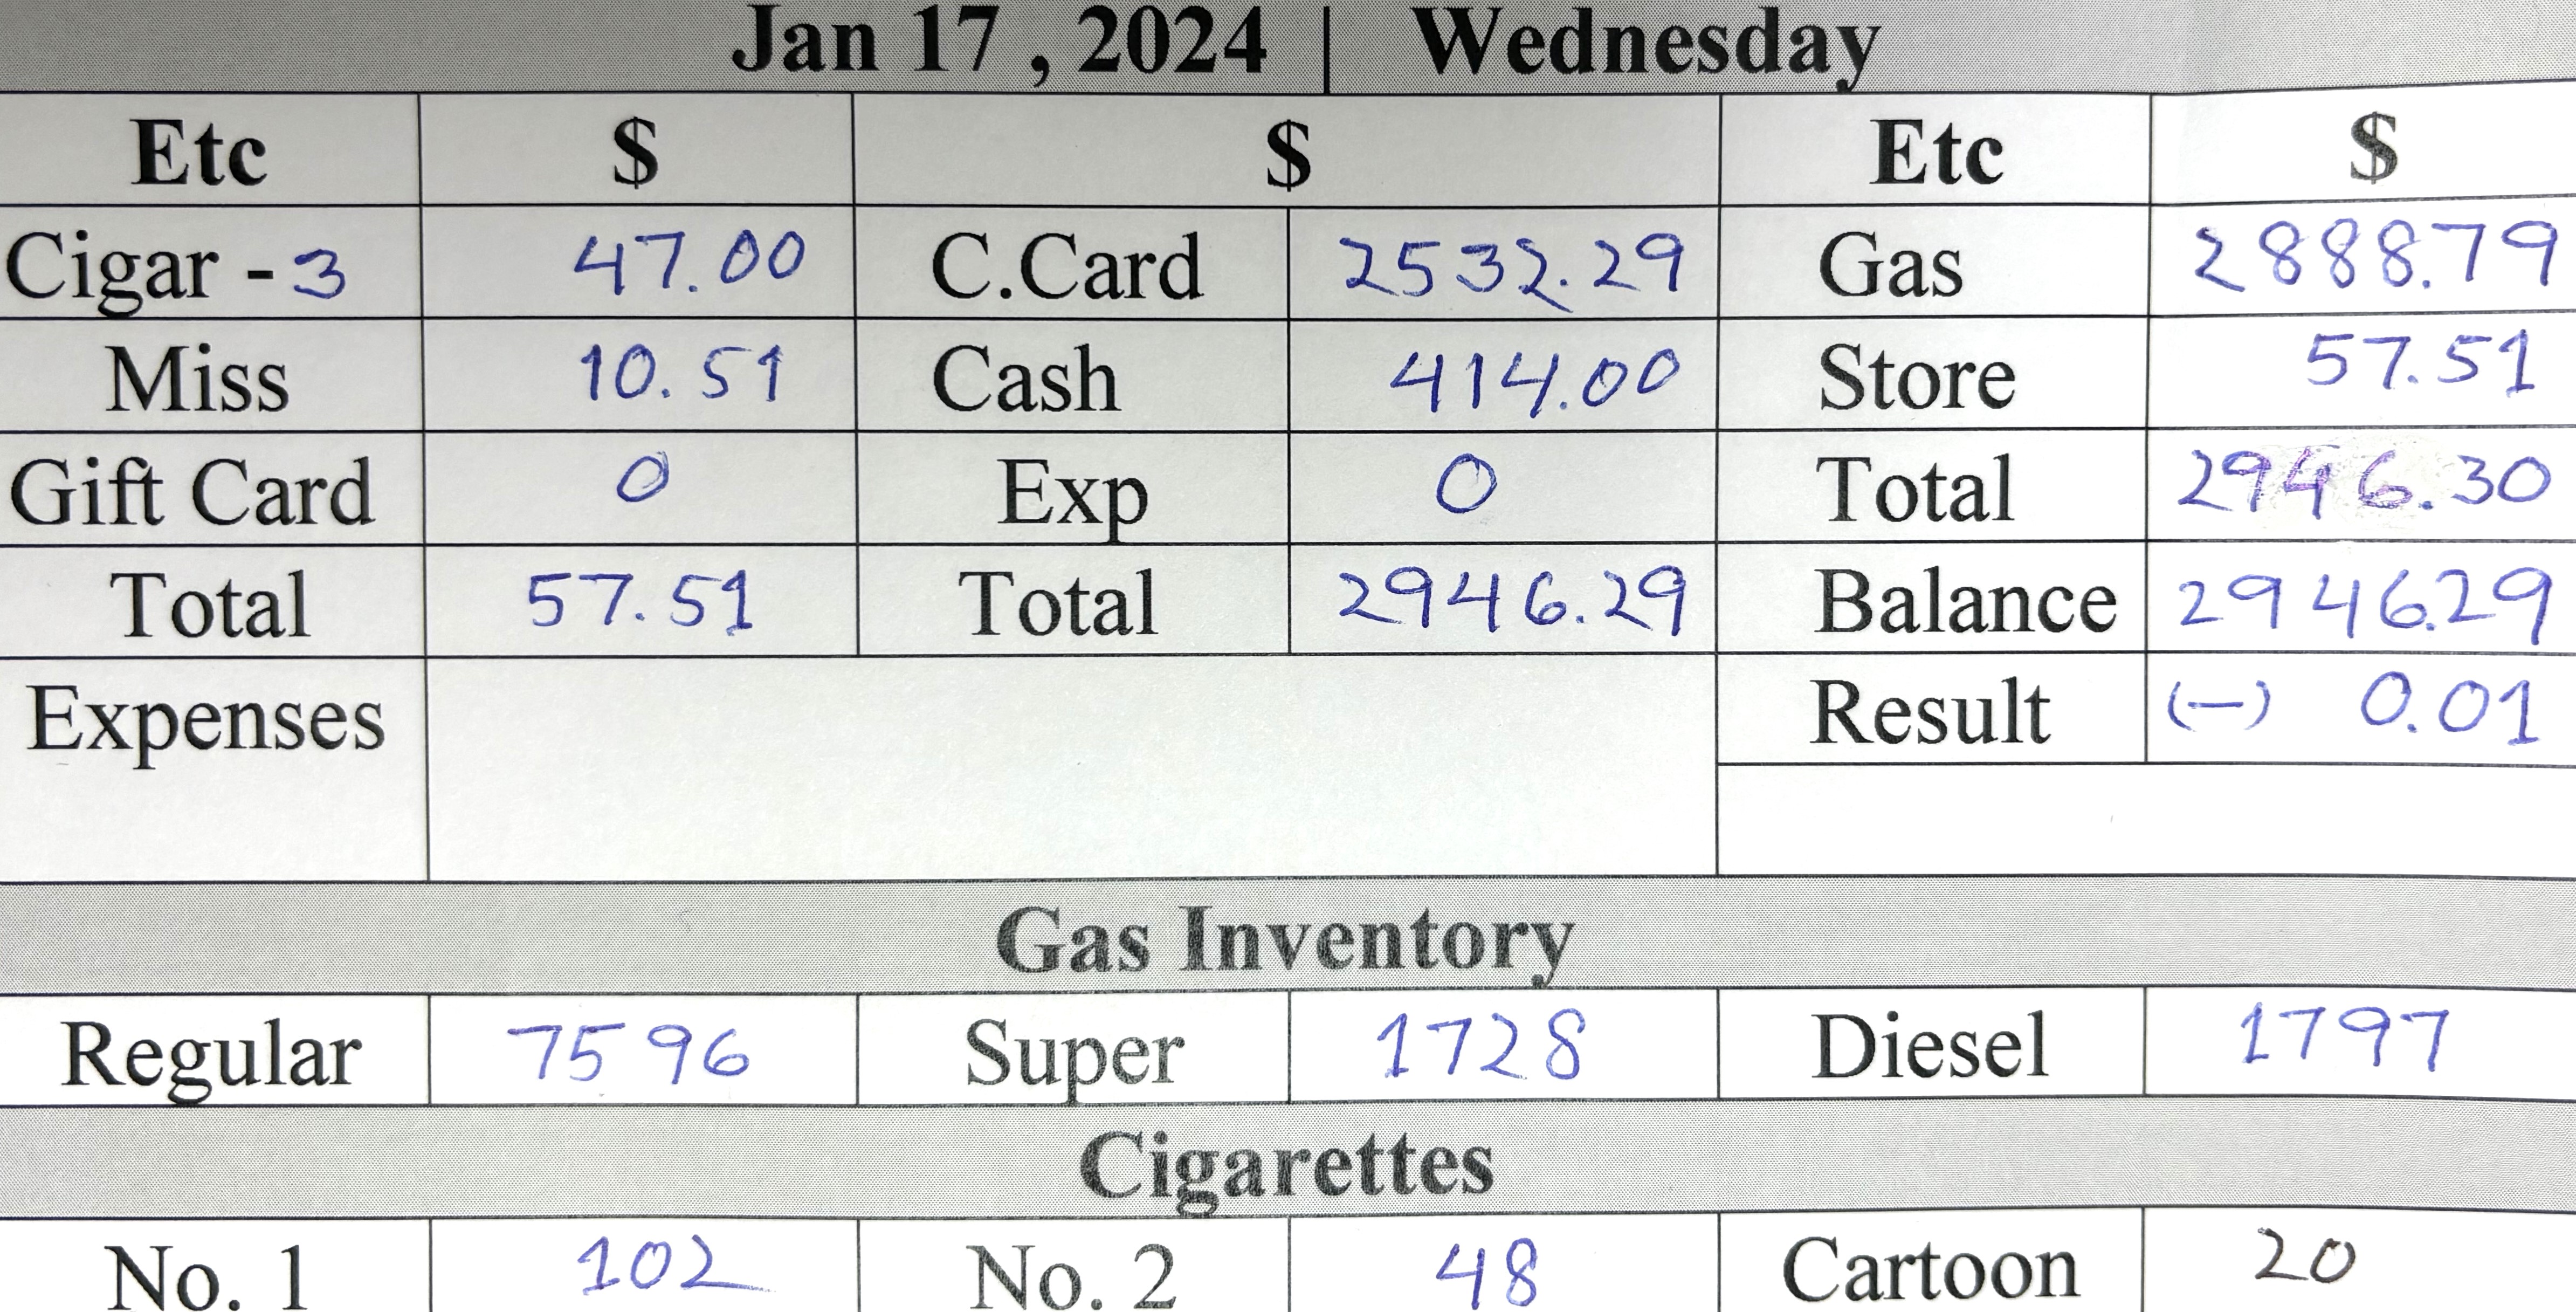 Jan 17 , 2024 | Wednesday
Etc $ $ Etc $
Cigar - 3 47.00 C.Card 2532.29 Gas 2888.79
Miss 10.51 Cash 414.00 Store 57.51
Gift Card 0 Exp 0 Total 2946.30
Total 57.51 Total 2946.29 Balance 2946.29
Expenses Result (-) 0.01
Gas Inventory
Regular 7596 Super 1728 Diesel 1797
Cigarettes
No. 1 102 No. 2 48 Cartoon 20